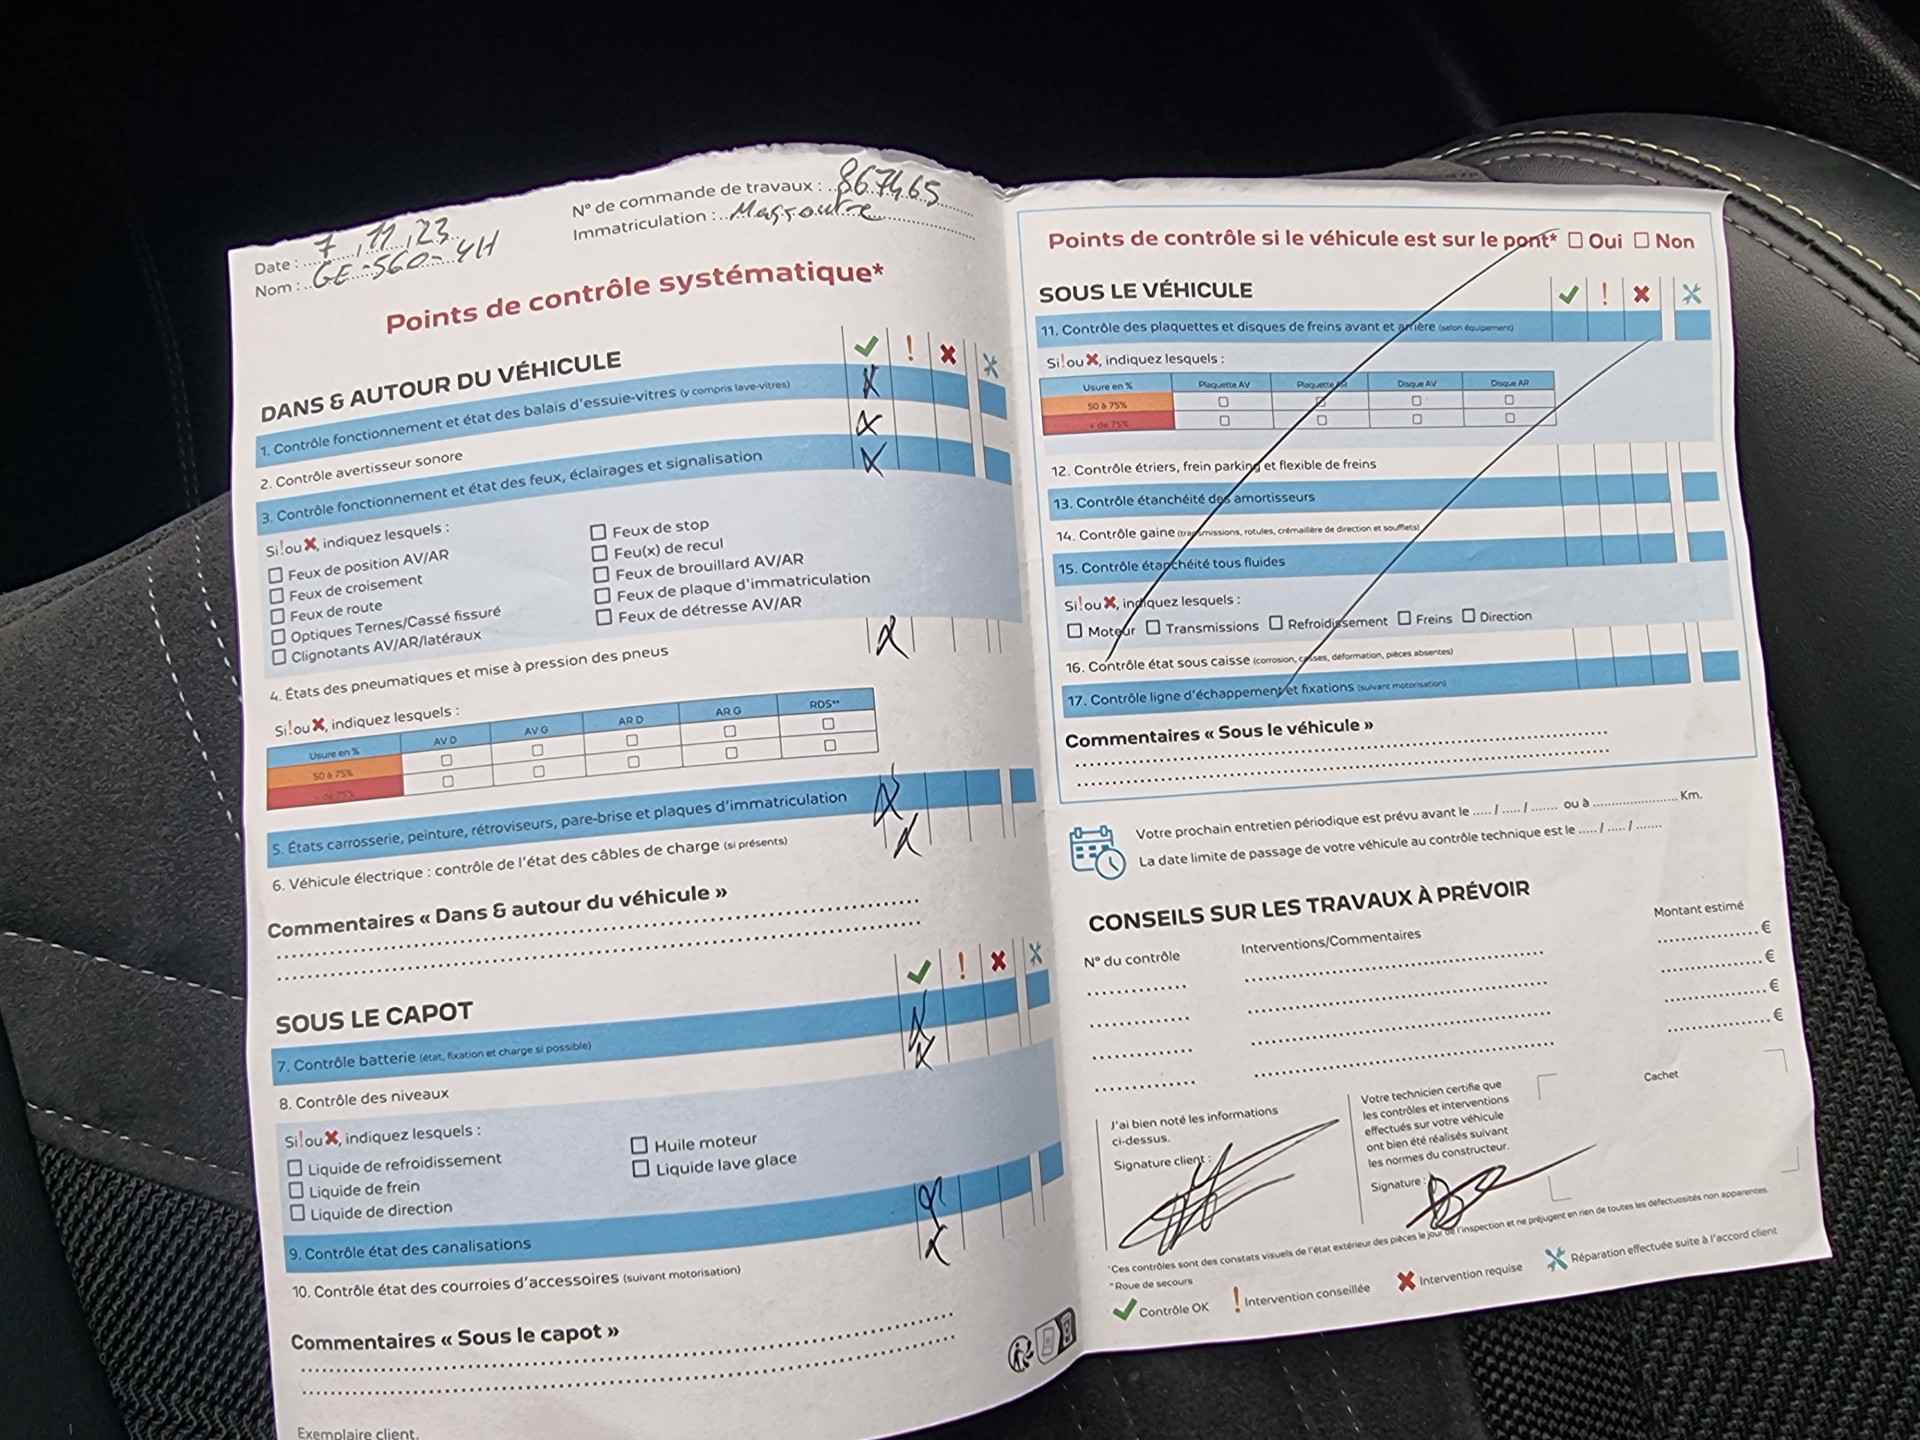 Date : 7, 11, 23
Nom : GE-560-YH
N° de commande de travaux : 867465
Immatriculation : Massoutre
Points de contrôle systématique*
DANS & AUTOUR DU VÉHICULE
1. Contrôle fonctionnement et état des balais d'essuie-vitres (y compris lave-vitres) X
2. Contrôle avertisseur sonore X
3. Contrôle fonctionnement et état des feux, éclairages et signalisation X
Si ! ou ✖, indiquez lesquels :
Feux de position AV/AR
Feux de croisement
Feux de route
Optiques Ternes/Cassé fissuré
Clignotants AV/AR/latéraux
Feux de stop
Feu(x) de recul
Feux de brouillard AV/AR
Feux de plaque d'immatriculation
Feux de détresse AV/AR
4. États des pneumatiques et mise à pression des pneus X
Si ! ou ✖, indiquez lesquels :
Usure en % AV D AV G AR D AR G RDS**
50 à 75%
+ de 75%
5. États carrosserie, peinture, rétroviseurs, pare-brise et plaques d'immatriculation X
6. Véhicule électrique : contrôle de l'état des câbles de charge (si présents) X
Commentaires « Dans & autour du véhicule »
SOUS LE CAPOT
7. Contrôle batterie (état, fixation et charge si possible) X
8. Contrôle des niveaux X
Si ! ou ✖, indiquez lesquels :
Liquide de refroidissement
Liquide de frein
Liquide de direction
Huile moteur
Liquide lave glace
9. Contrôle état des canalisations X
10. Contrôle état des courroies d'accessoires (suivant motorisation) X
Commentaires « Sous le capot »
Exemplaire client.
Points de contrôle si le véhicule est sur le pont* Oui Non
SOUS LE VÉHICULE
11. Contrôle des plaquettes et disques de freins avant et arrière (selon équipement)
Si ! ou ✖, indiquez lesquels :
Usure en % Plaquette AV Plaquette AR Disque AV Disque AR
50 à 75%
+ de 75%
12. Contrôle étriers, frein parking et flexible de freins
13. Contrôle étanchéité des amortisseurs
14. Contrôle gaine (transmissions, rotules, crémaillère de direction et soufflets)
15. Contrôle étanchéité tous fluides
Si ! ou ✖, indiquez lesquels :
Moteur Transmissions Refroidissement Freins Direction
16. Contrôle état sous caisse (corrosion, casses, déformation, pièces absentes)
17. Contrôle ligne d'échappement et fixations (suivant motorisation)
Commentaires « Sous le véhicule »
Votre prochain entretien périodique est prévu avant le ..... / ..... / ........ ou à ........................ Km.
La date limite de passage de votre véhicule au contrôle technique est le ..... / ..... / .......
CONSEILS SUR LES TRAVAUX À PRÉVOIR
N° du contrôle Interventions/Commentaires Montant estimé
€
€
€
€
J'ai bien noté les informations
ci-dessus.
Signature client :
Votre technicien certifie que
les contrôles et interventions
effectués sur votre véhicule
ont bien été réalisés suivant
les normes du constructeur.
Signature :
Cachet
*Ces contrôles sont des constats visuels de l'état extérieur des pièces le jour de l'inspection et ne préjugent en rien de toutes les défectuosités non apparentes.
**Roue de secours
Contrôle OK ! Intervention conseillée ✖ Intervention requise Réparation effectuée suite à l'accord client